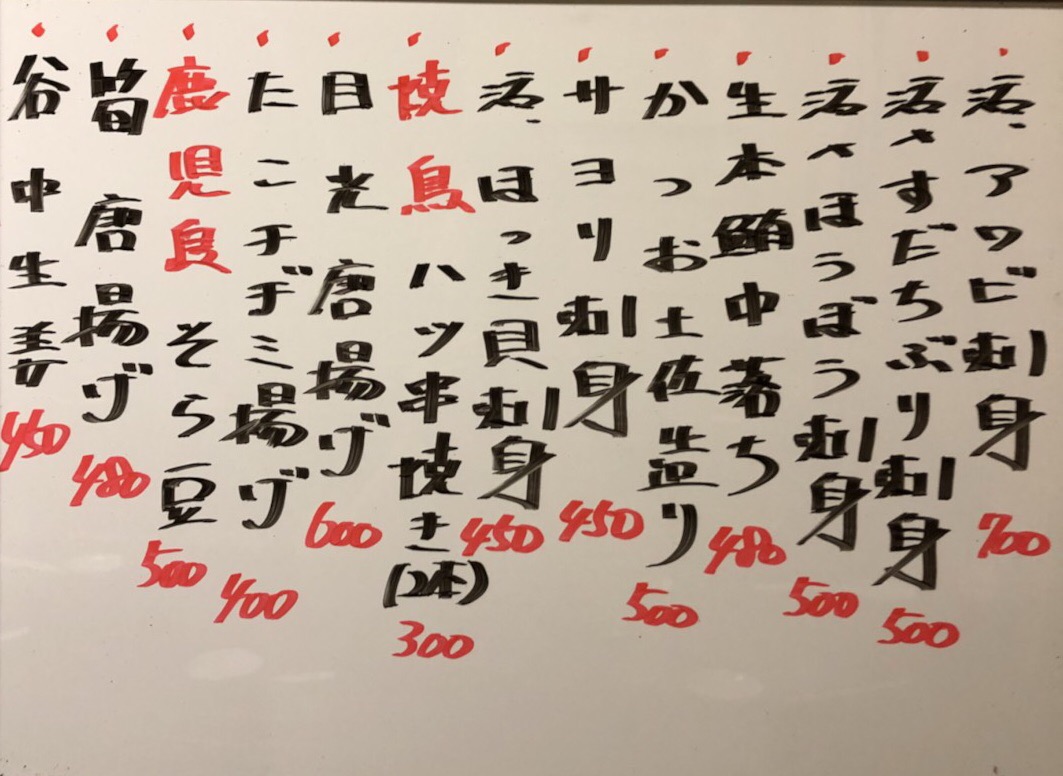 活、アワビ刺身 700
活〻すだちぶり刺身 500
活〻ほうぼう刺身 500
生本鮪中落ち 480
かつお土佐造り 500
サヨリ刺身 450
活、ほっき貝刺身 450
焼鳥 ハツ串焼き(2本) 300
目光唐揚げ 600
たこチヂミ揚げ 400
鹿児島 そら豆 500
筍 唐揚げ 480
谷中生姜 450